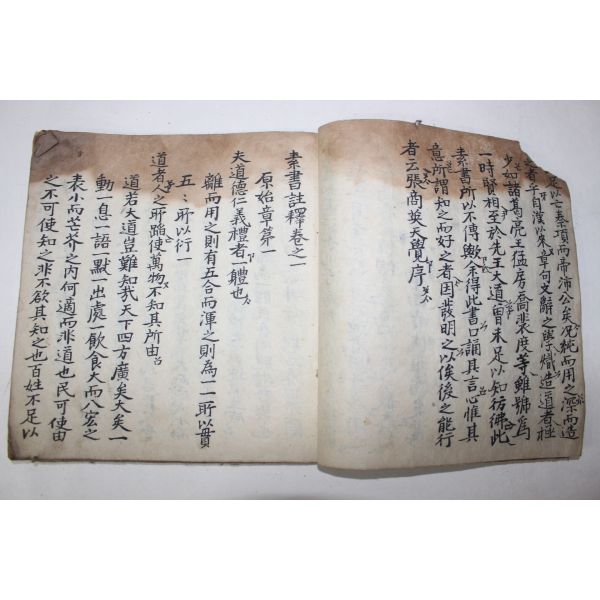 足以亡秦項而帝沛公矣況純而用之深而造
之者乎自漢以來章句文辭之學熾造道者極
少如諸葛亮王猛房喬裴度等雖號為
一時賢相至於先王大道曾未足以知彷彿此
素書所以不傳歟余得此書口誦其言心惟其
意所謂知之而好之者因發明之以俟後之能行
者云張商英天覺序
素書註釋卷之一
原始章第一
夫道德仁義禮者一軆也
離而用之則有五合而渾之則為一一所以貫
五五所以行一
道者人之所蹈使萬物不知其所由
道若大道豈難知哉天下四方廣矣大矣一
動一息一語一默一出處一飲食大而八宏之
表小而芒芥之內何適而非道也民可使由
之不可使知之非不欲其知之也百姓不足以